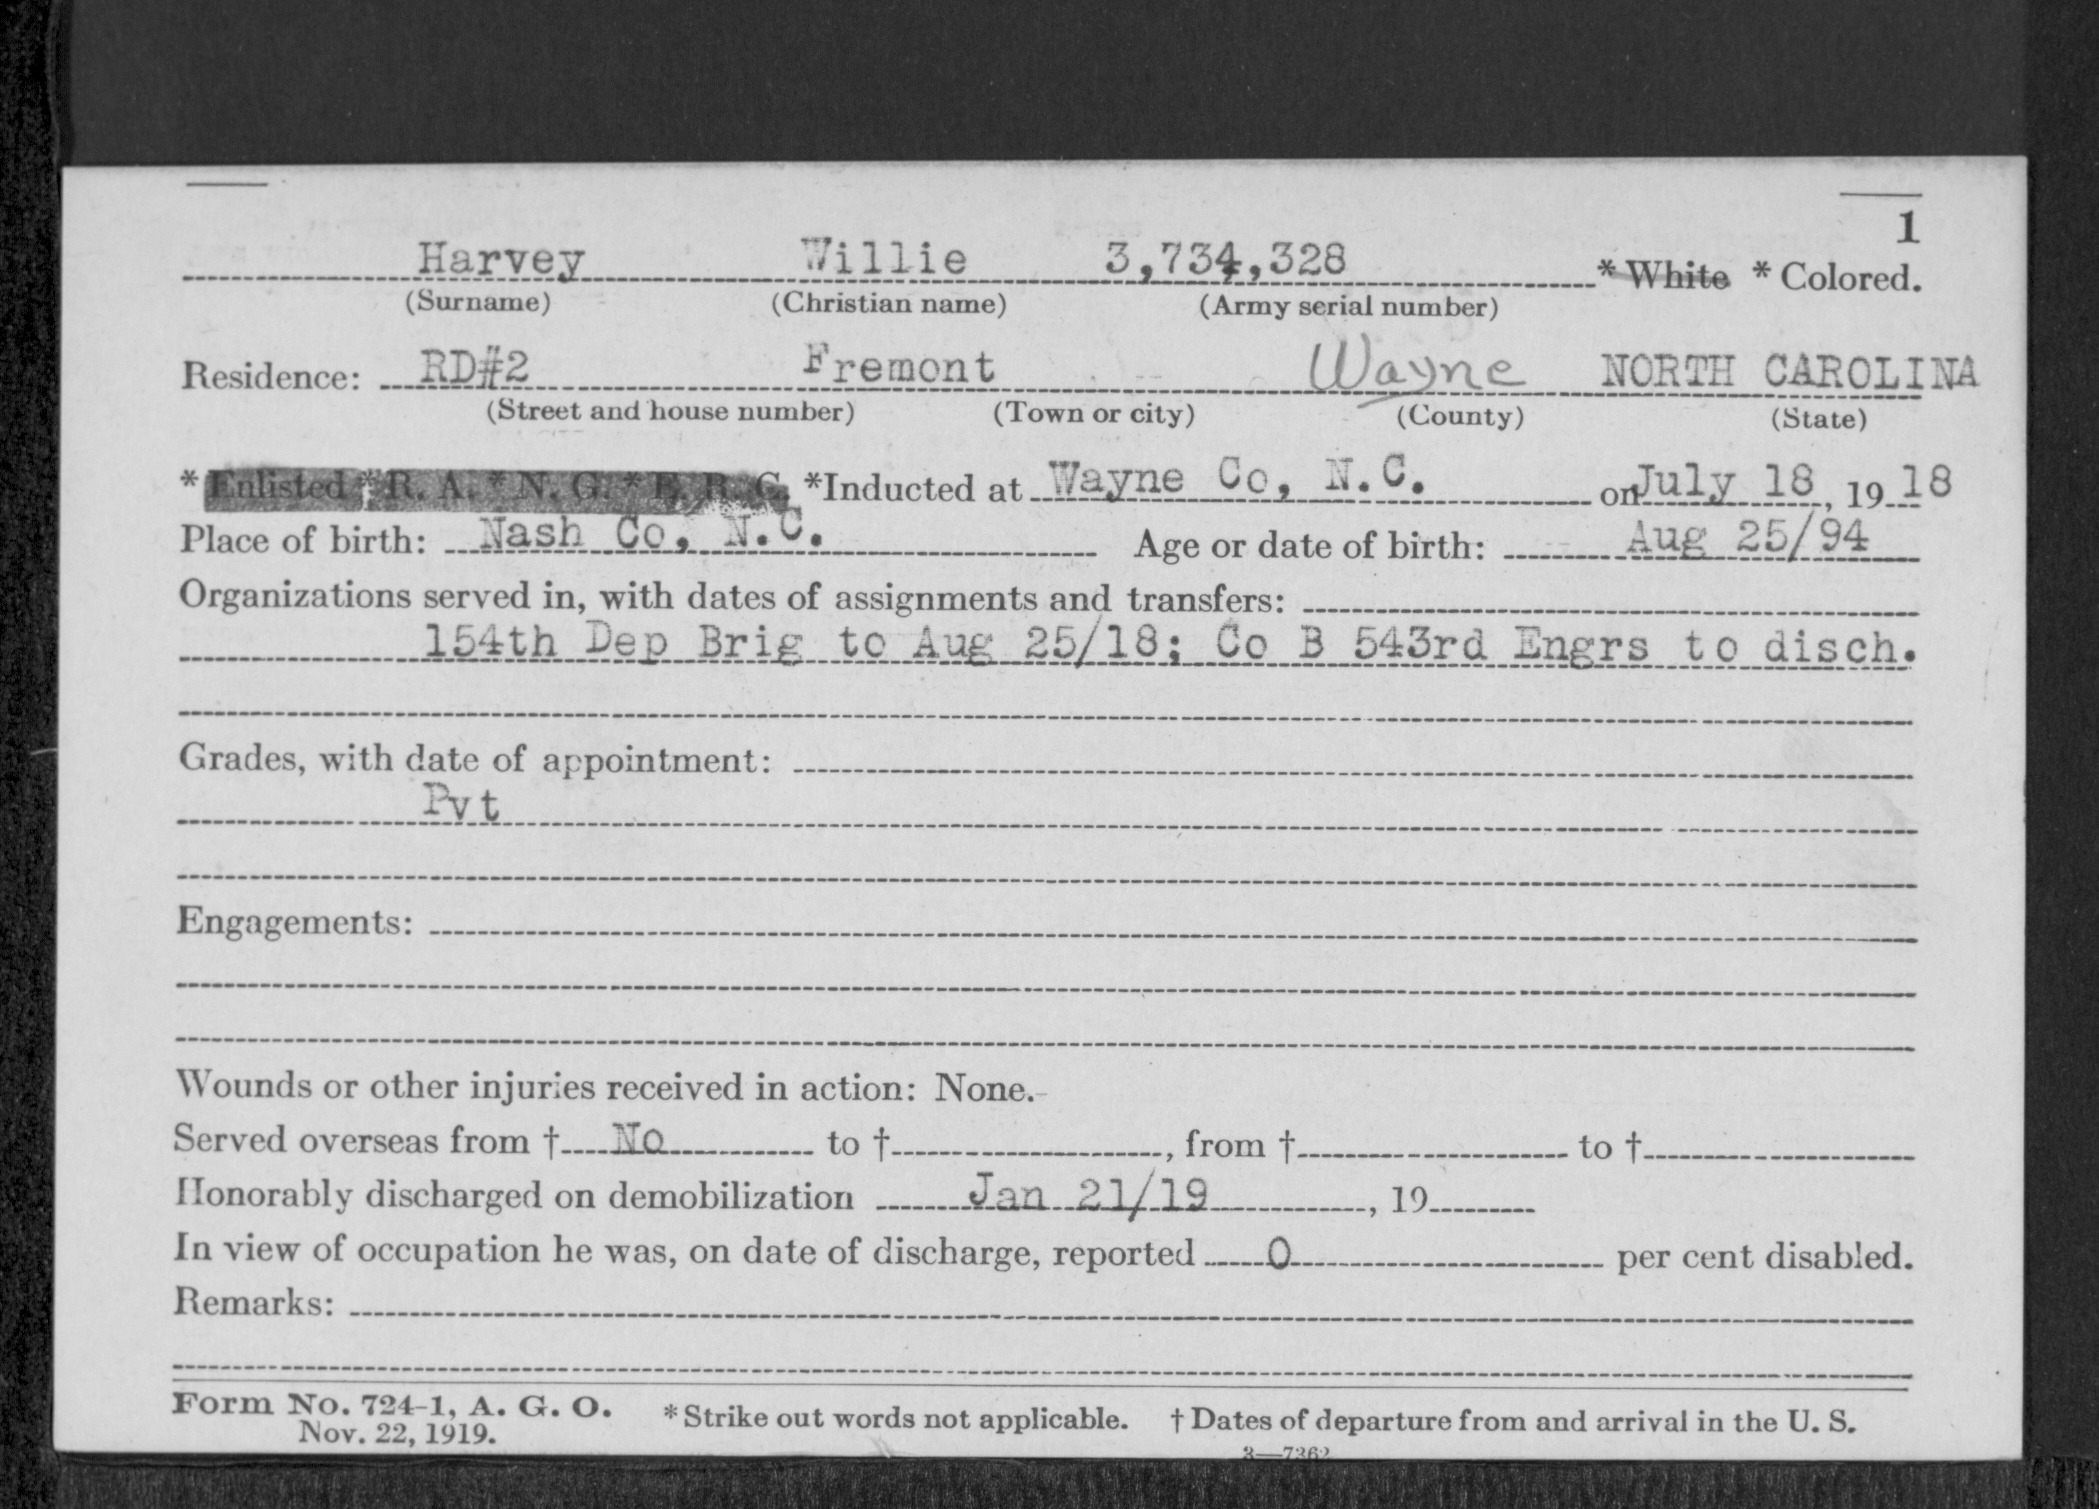 1
Harvey Willie 3,734,328 * White * Colored.
(Surname) (Christian name) (Army serial number)
Residence: RD#2 Fremont Wayne NORTH CAROLINA
(Street and house number) (Town or city) (County) (State)
* Enlisted * R. A. * N. G. * E. R. C. *Inducted at Wayne Co, N.C. on July 18, 19 18
Place of birth: Nash Co, N.C. Age or date of birth: Aug 25/94
Organizations served in, with dates of assignments and transfers:
154th Dep Brig to Aug 25/18; Co B 543rd Engrs to disch.
Grades, with date of appointment:
Pvt
Engagements:
Wounds or other injuries received in action: None.
Served overseas from † No to †, from † to †
Honorably discharged on demobilization Jan 21/19, 19
In view of occupation he was, on date of discharge, reported 0 per cent disabled.
Remarks:
Form No. 724-1, A. G. O. * Strike out words not applicable. † Dates of departure from and arrival in the U. S.
Nov. 22, 1919.
3—7362